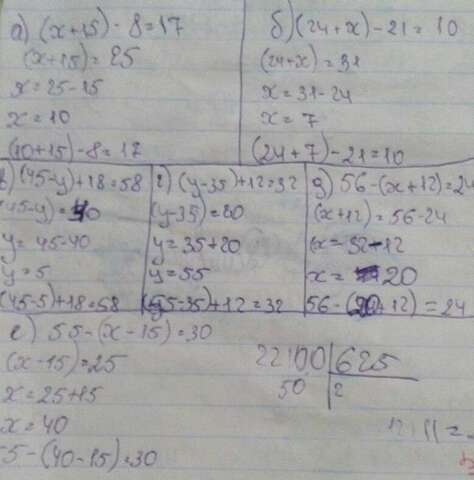 а) (x+15)-8=17
(x+15)=25
x=25-15
x=10
(10+15)-8=17
б) (24+x)-21=10
(24+x)=31
x=31-24
x=7
(24+7)-21=10
в) (45-y)+18=58
(45-y)=40
y=45-40
y=5
(45-5)+18=58
г) (y-35)+12=32
(y-35)=20
y=35+20
y=55
(55-35)+12=32
д) 56-(x+12)=24
(x+12)=56-24
x=32-12
x=20
56-(20+12)=24
е) 55-(x-15)=30
(x-15)=25
x=25+15
x=40
55-(40-15)=30
22100 625
50 2